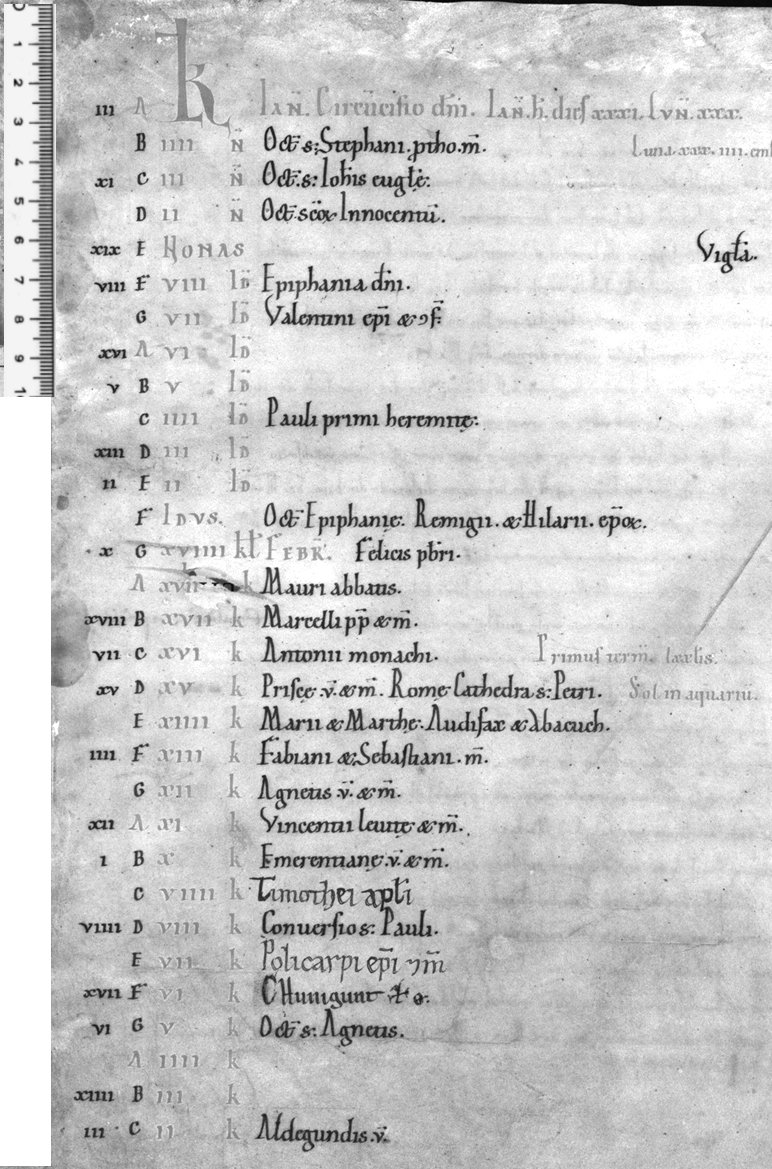 III A K IAN. Circūcisio dn̄i. IAN. h̄. dies xxxi. LVN̄. xxx.
B IIII N̄ Oct̄ s; Stephani. ptho. m̄. Luna xxx. IIII. emb
XI C III N̄ Oct̄. s: Ioh̄is eugłę:
D II N̄ Oct̄ scōꝝ Innocentiū.
XIX E NONAS Vigła.
VIII F VIII ID̄ Epiphania dn̄i.
G VII ID̄ Valentini ep̄i & ↄf̄:
XVI A VI ID̄
V B V ID̄
C IIII ID̄ Pauli primi heremitę:
XIII D III ID̄
II E II ID̄
F IDVS. Oct̄ Epiphanię: Remigii. & Hilarii. ep̄oꝝ.
X G XVIIII kł FEBR̄. Felicis pb̄ri.
A XVIII k Mauri abbatis.
XVIII B XVII k Marcelli pp̄ & m̄.
VII C XVI k Antonii monachi. Primus term̄. lxxlis.
XV D XV k Priscę v̄. & m̄. Romę Cathedra s: Petri. Sol in aquariū.
E XIIII k Marii & Marthę: Audifax & Abacuch.
IIII F XIII k Fabiani &; Sebastiani. m̄.
G XII k Agnetis v̄. & m̄.
XII A XI k Vincentii leuitę & m̄.
I B X k Emerentianę. v̄. & m̄.
C VIIII k Timothei apłi
VIIII D VIII k Conuersio s: Pauli.
E VII k Policarpi ep̄i ⁊ m̄
XVII F VI k CHunigunt
VI G V k Oct̄ s: Agnetis.
A IIII k
XIIII B III k
III C II k Aldegundis. v̄.